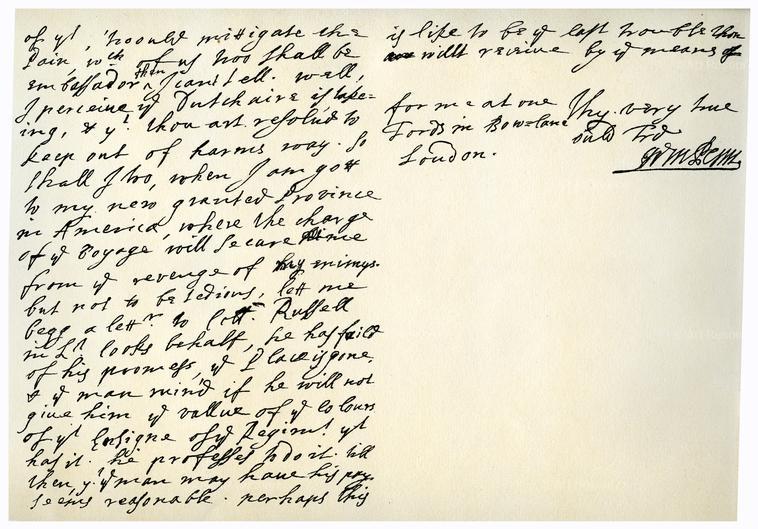 of yt, 'twould mittigate the
Pain, wch of us two shall be
embassador then I cant tell. well,
I perceive ye Dutch aire is
ing, & yt thou art resolv'd to
keep out of harms way. So
shall I too, when I am gott
to my new granted Province
in America, where the charge
of ye Voyage will secure mee
from ye revenge of my enimys.
but not to be tedious, lett me
begg a lettr to Coll. Russell
in Lt looks behalf, he has faild
of his promess, ye Place is gone,
& ye man ruin'd if he will not
give him ye vallue of ye colours
of yt Ensigne of ye Regimt yt
has it. he professes to do it. till
then, yt ye man may have his pay
seems reasonable. perhaps this
is like to be ye last trouble thou
willt receive by ye means of
for me at one Thy very true
Fords in Bow-lane ould Frd
London. Wm Penn